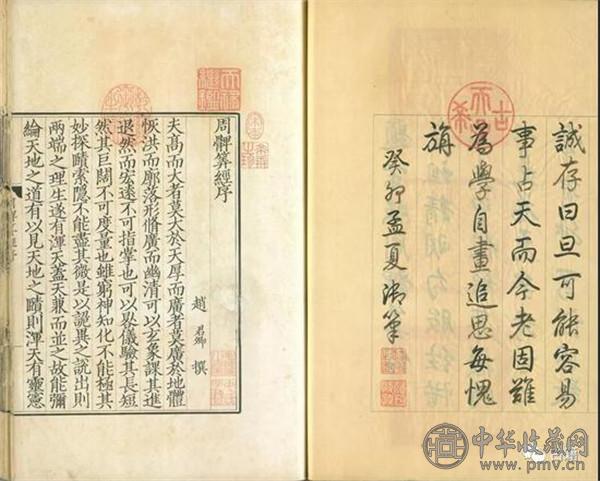 誠存曰旦可能容易
事占天而今老固難
為學自畫追思每愧
旃
癸卯孟夏御筆
古希天子
周髀筭經序
趙君卿撰
夫髙而大者莫大於天厚而廣者莫廣於地體
恢洪而廓落形脩廣而幽清可以玄象課其進
退然而宏逺不可指掌也可以晷儀驗其長短
然其巨闊不可度量也雖窮神知化不能極其
妙探賾索隱不能盡其微是以詭異之說出則
兩端之理生遂有渾天蓋天兼而並之故能彌
綸天地之道有以見天地之賾則渾天有靈憲
天祿繼鑑
中华收藏网
www.pmv.cn